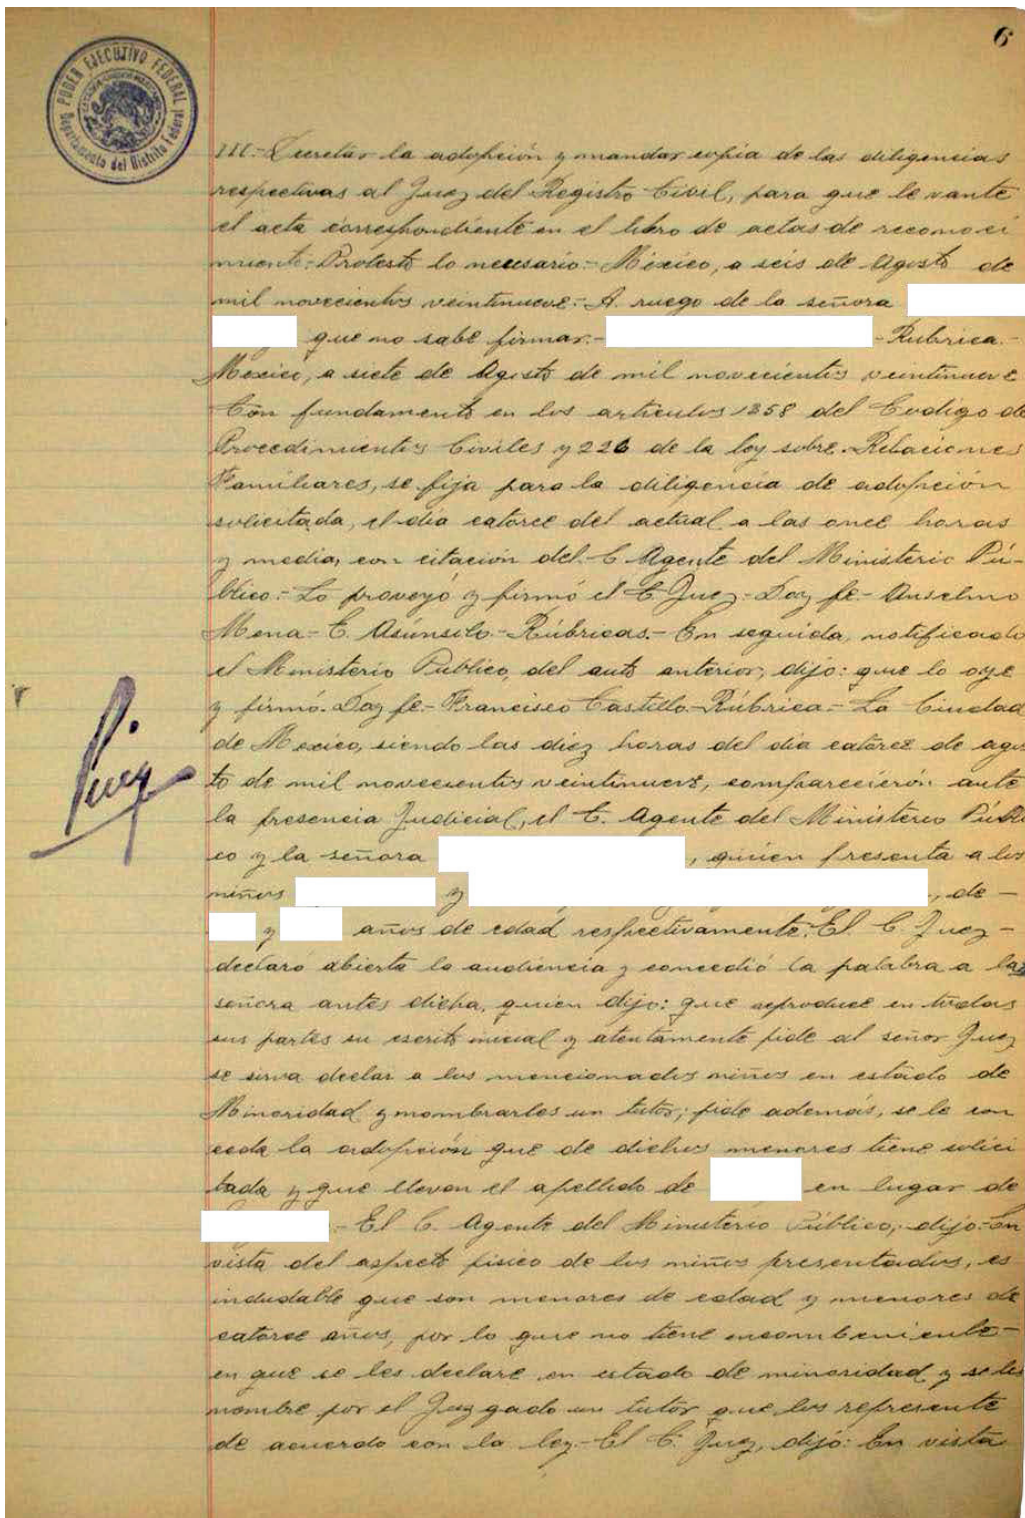 6
PODER EJECUTIVO FEDERAL
Departamento del Distrito Federal
III.- Decretar la adopción y mandar copia de las diligencias
respectivas al Juez del Registro Civil, para que le vante
el acta correspondiente en el libro de actas de reconoci
miento.- Protesto lo necesario.- México, a seis de Agosto de
mil novecientos veintinueve.- A ruego de la señora
que no sabe firmar.- - Rúbrica.-
México, a siete de Agosto de mil novecientos veintinueve
Con fundamento en los artículos 1358 del Codigo de
Procedimientos Civiles y 226 de la ley sobre Relaciones
Familiares, se fija para la diligencia de adopción
solicitada, el día catorce del actual a las once horas
y media, con citación del C. Agente del Ministerio Pú-
blico.- Lo proveyó y firmó el C. Juez.- Doy fe.- Anselmo
Mena.- C. Asúnsolo.- Rúbricas.- En seguida, notificado
el Ministerio Público, del auto anterior, dijo: que lo oye
y firmó. Doy fe.- Francisco Castillo.- Rúbrica.- La Ciudad
de Mexico, siendo las diez horas del día catorce de agos
to de mil novecientos veintinueve, comparecierón ante
la presencia Judicial, el C. Agente del Ministerio Públi
co y la señora , quien presenta a los
niños y , de -
y años de edad respectivamente. El C. Juez -
declaró abierta la audiencia y concedió la palabra a la
señora antes dicha, quien dijo: que reproduce en todas
sus partes su escrito inicial y atentamente pide al señor Juez
se sirva declar a los mencionados niños en estado de
Minoridad y nombrarles un tutor; pide además, se le con
ceda la adopción que de dichos menores tiene solici
tada y que lleven el apellido de en lugar de
.- El C. Agente del Ministerio Público, dijo: En
vista del aspecto físico de los niños presentados, es
indudable que son menores de edad y menores de
catorce años, por lo que no tiene incombeniente -
en que se les declare en estado de minoridad y se les
nombre por el Juzgado un tutor que los represente
de acuerdo con la ley.- El C. Juez, dijo: En vista